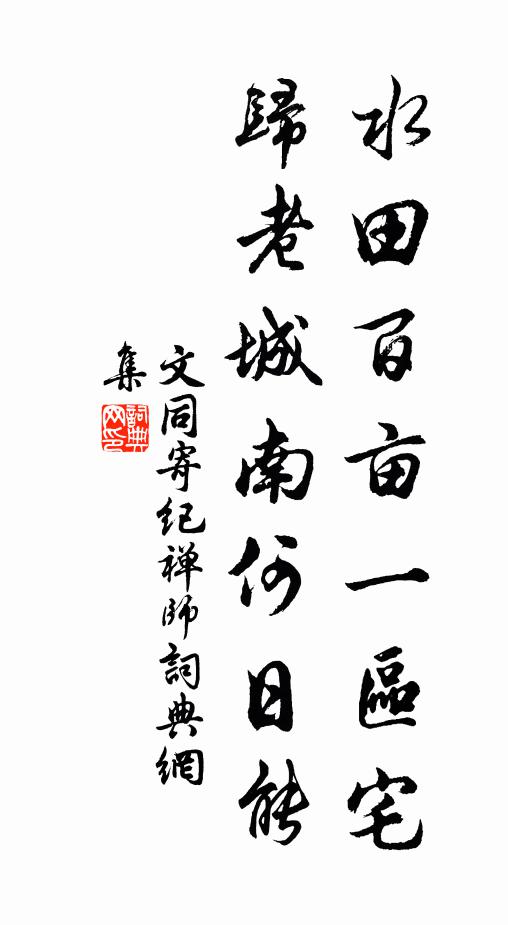 水田百亩一區宅
歸老城南何日能
文同寄纪禅師詞典網
集
詞典网印